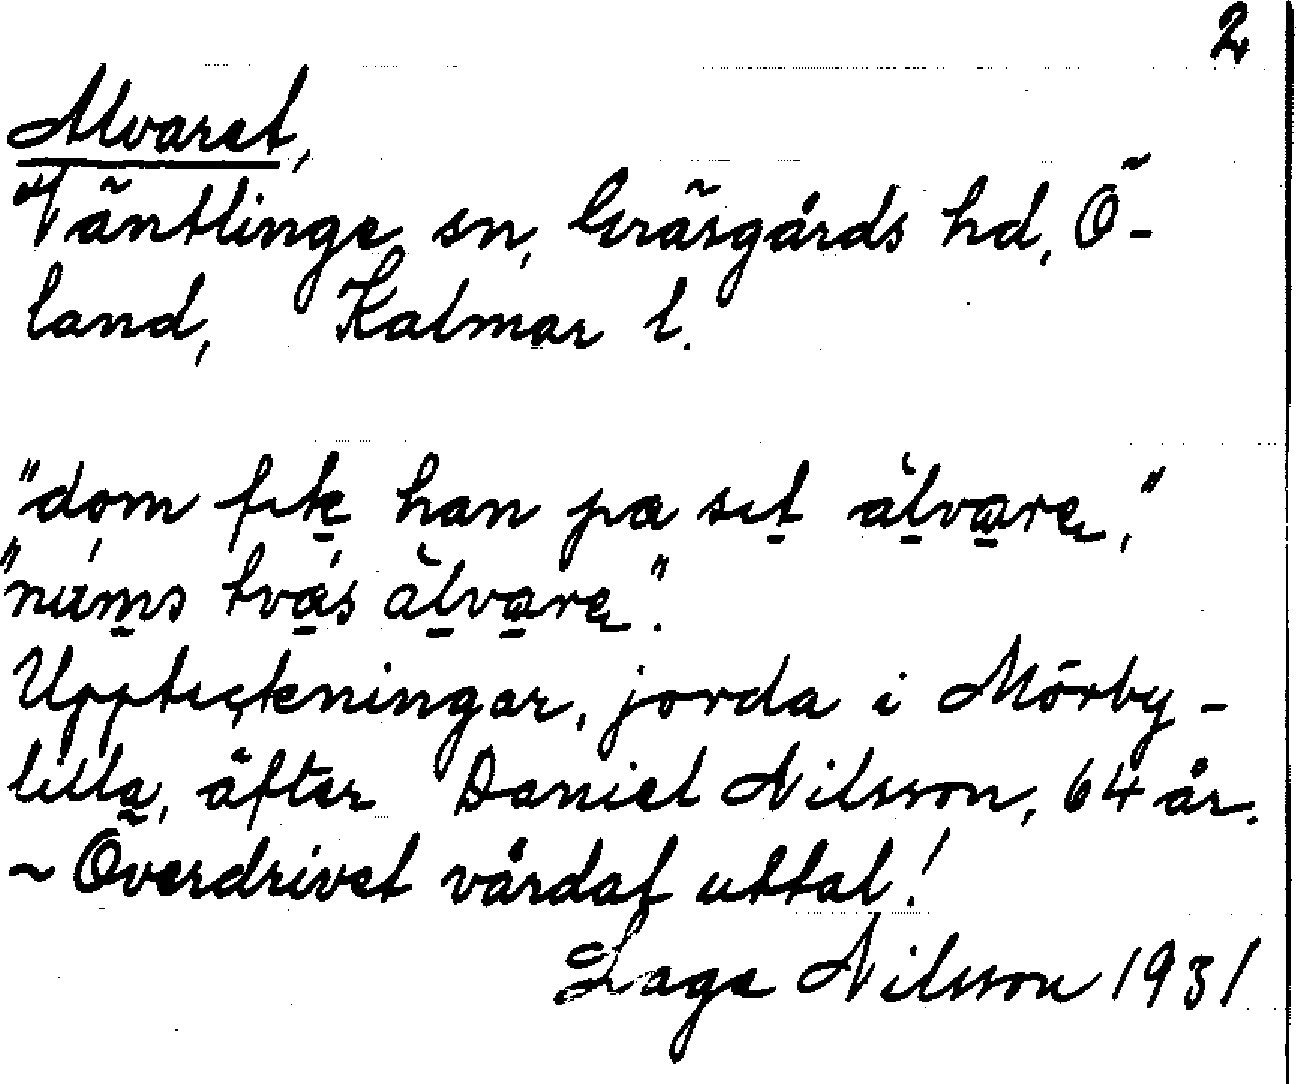 2
Alvaret,
Väntlinge sn, Gräsgårds hd, Ö-
land, Kalmar l.
"dom fık han pa sıt àlvare,"
"núms tvás àlvare".
Uppteckningar, jorda i Mörby-
lilla, äfter Daniel Nilsson, 64 år.
~ Överdrivet vårdat uttal!
Lage Nilsson 1931